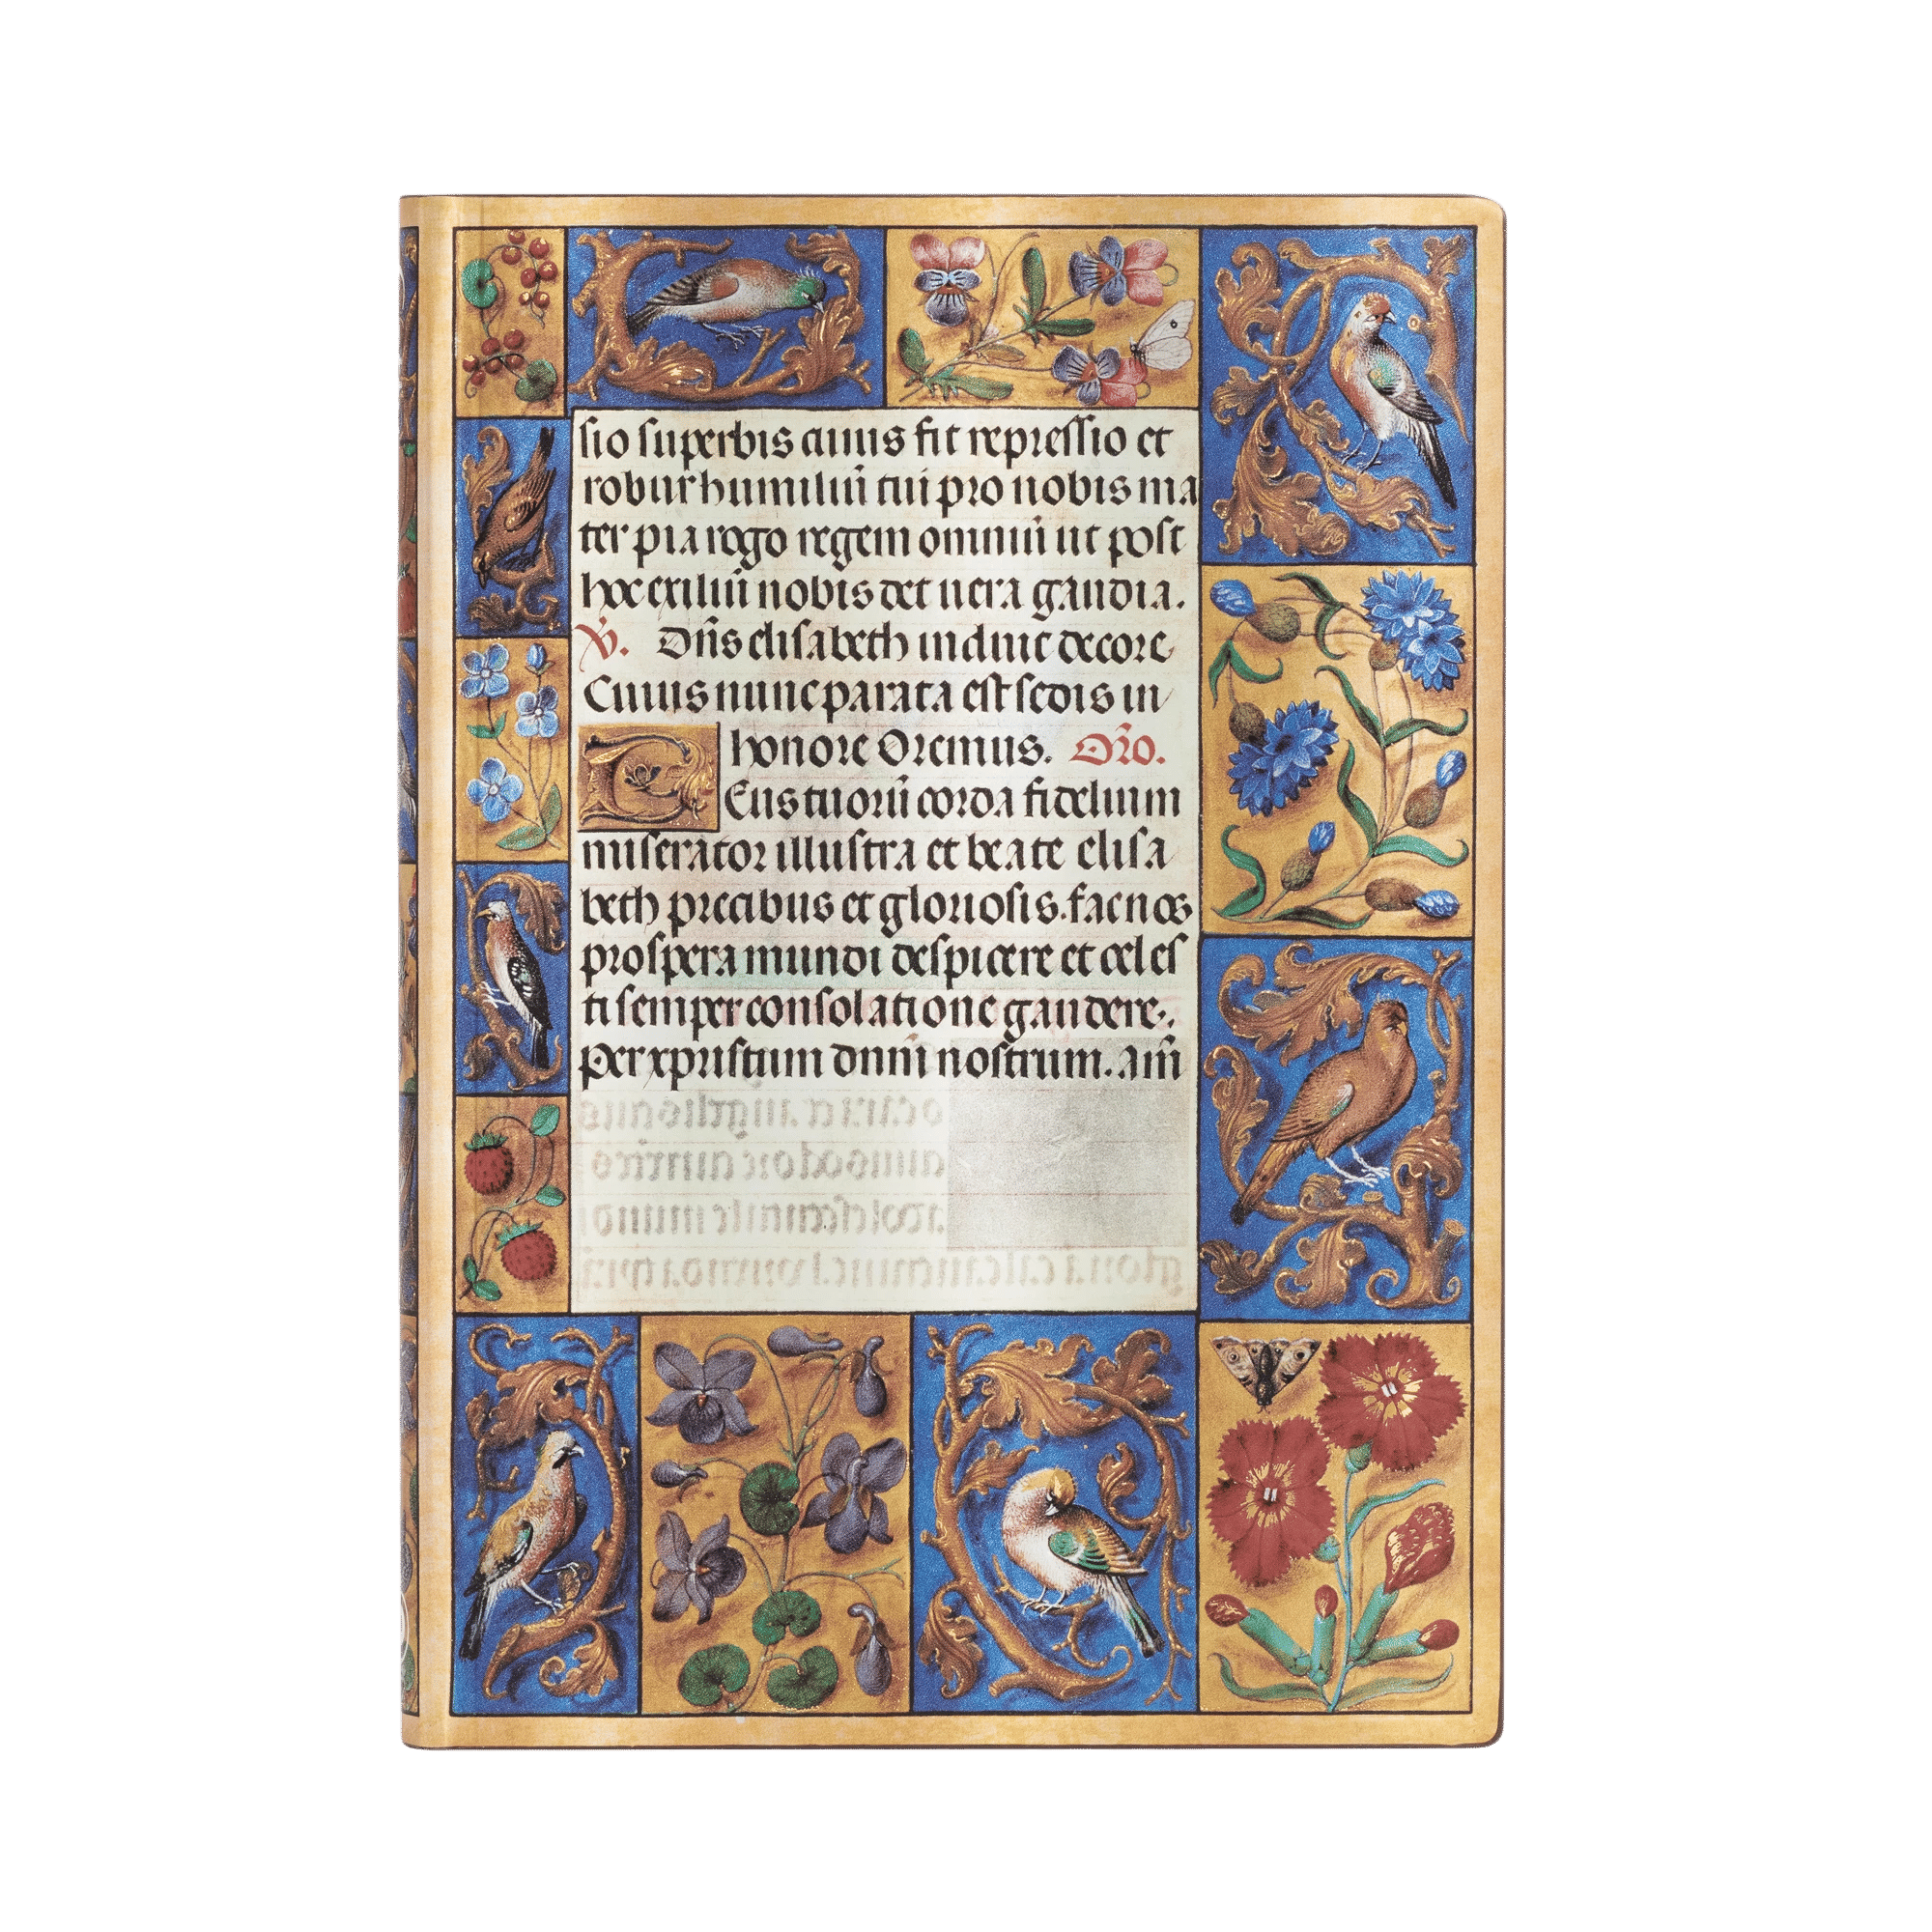 sio superbis cuius fit repressio et
robur humiliũ tui pro nobis ma
ter pia rogo regem omniũ ut post
hoc exiliũ nobis det uera gaudia.
V̓. Dñs elisabeth induit decore
Cuius nunc parata est sedis in
honore Oremus. Or̃o.
Deus tuorũ corda fidelium
miserator illustra et beate elisa
beth precibus et gloriosis. fac nos
prospera mundi despicere et celes
ti semper consolatione gaudere.
Per xpristum dnm̃ nostrum. am̃